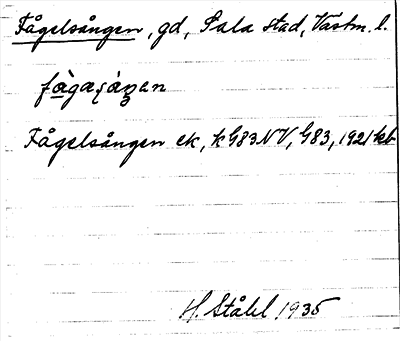 Fågelsången, gd, Sala stad, Västm. l.
Fågelsången ek, k G83NV, G83, 1921 kb
H. Ståhl 1935